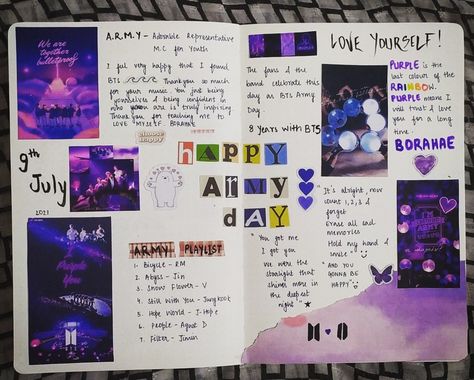 We are
together
bulletproof
A.R.M.Y - Adorable Representative
M.C for Youth
I feel very happy that I found
BTS Thank you so much
for your music. You just being
yourselves & being confident in
who you are is truly inspiring
Thank you for teaching me to
LOVE MYSELF. BORAHAE
choose
happy
9th
July
2021
I
Purple
You
ARMY PLAYLIST
1. Bicycle - RM
2. Abyss - Jin
3. Snow Flower - V
4. Still With You - Jungkook
5. Hope World - J-Hope
6. People - Agust D
7. Filter - Jimin
happy
Army
dAY
LOVE YOURSELF!
The fans & the
band celebrate this
day as BTS Army
Day.
8 Years with BTS
PURPLE is the
last colour of the
RAINBOW.
PURPLE means I
will trust & love
you for a long
time.
BORAHAE
It's alright, now
count 1,2,3 &
forget
Erase all sad
memories
Hold my hand &
smile
"You got me
I got you
We were the
starlight that
shines more in
the deepest
night"
"AND YOU
GONNA BE
HAPPY"